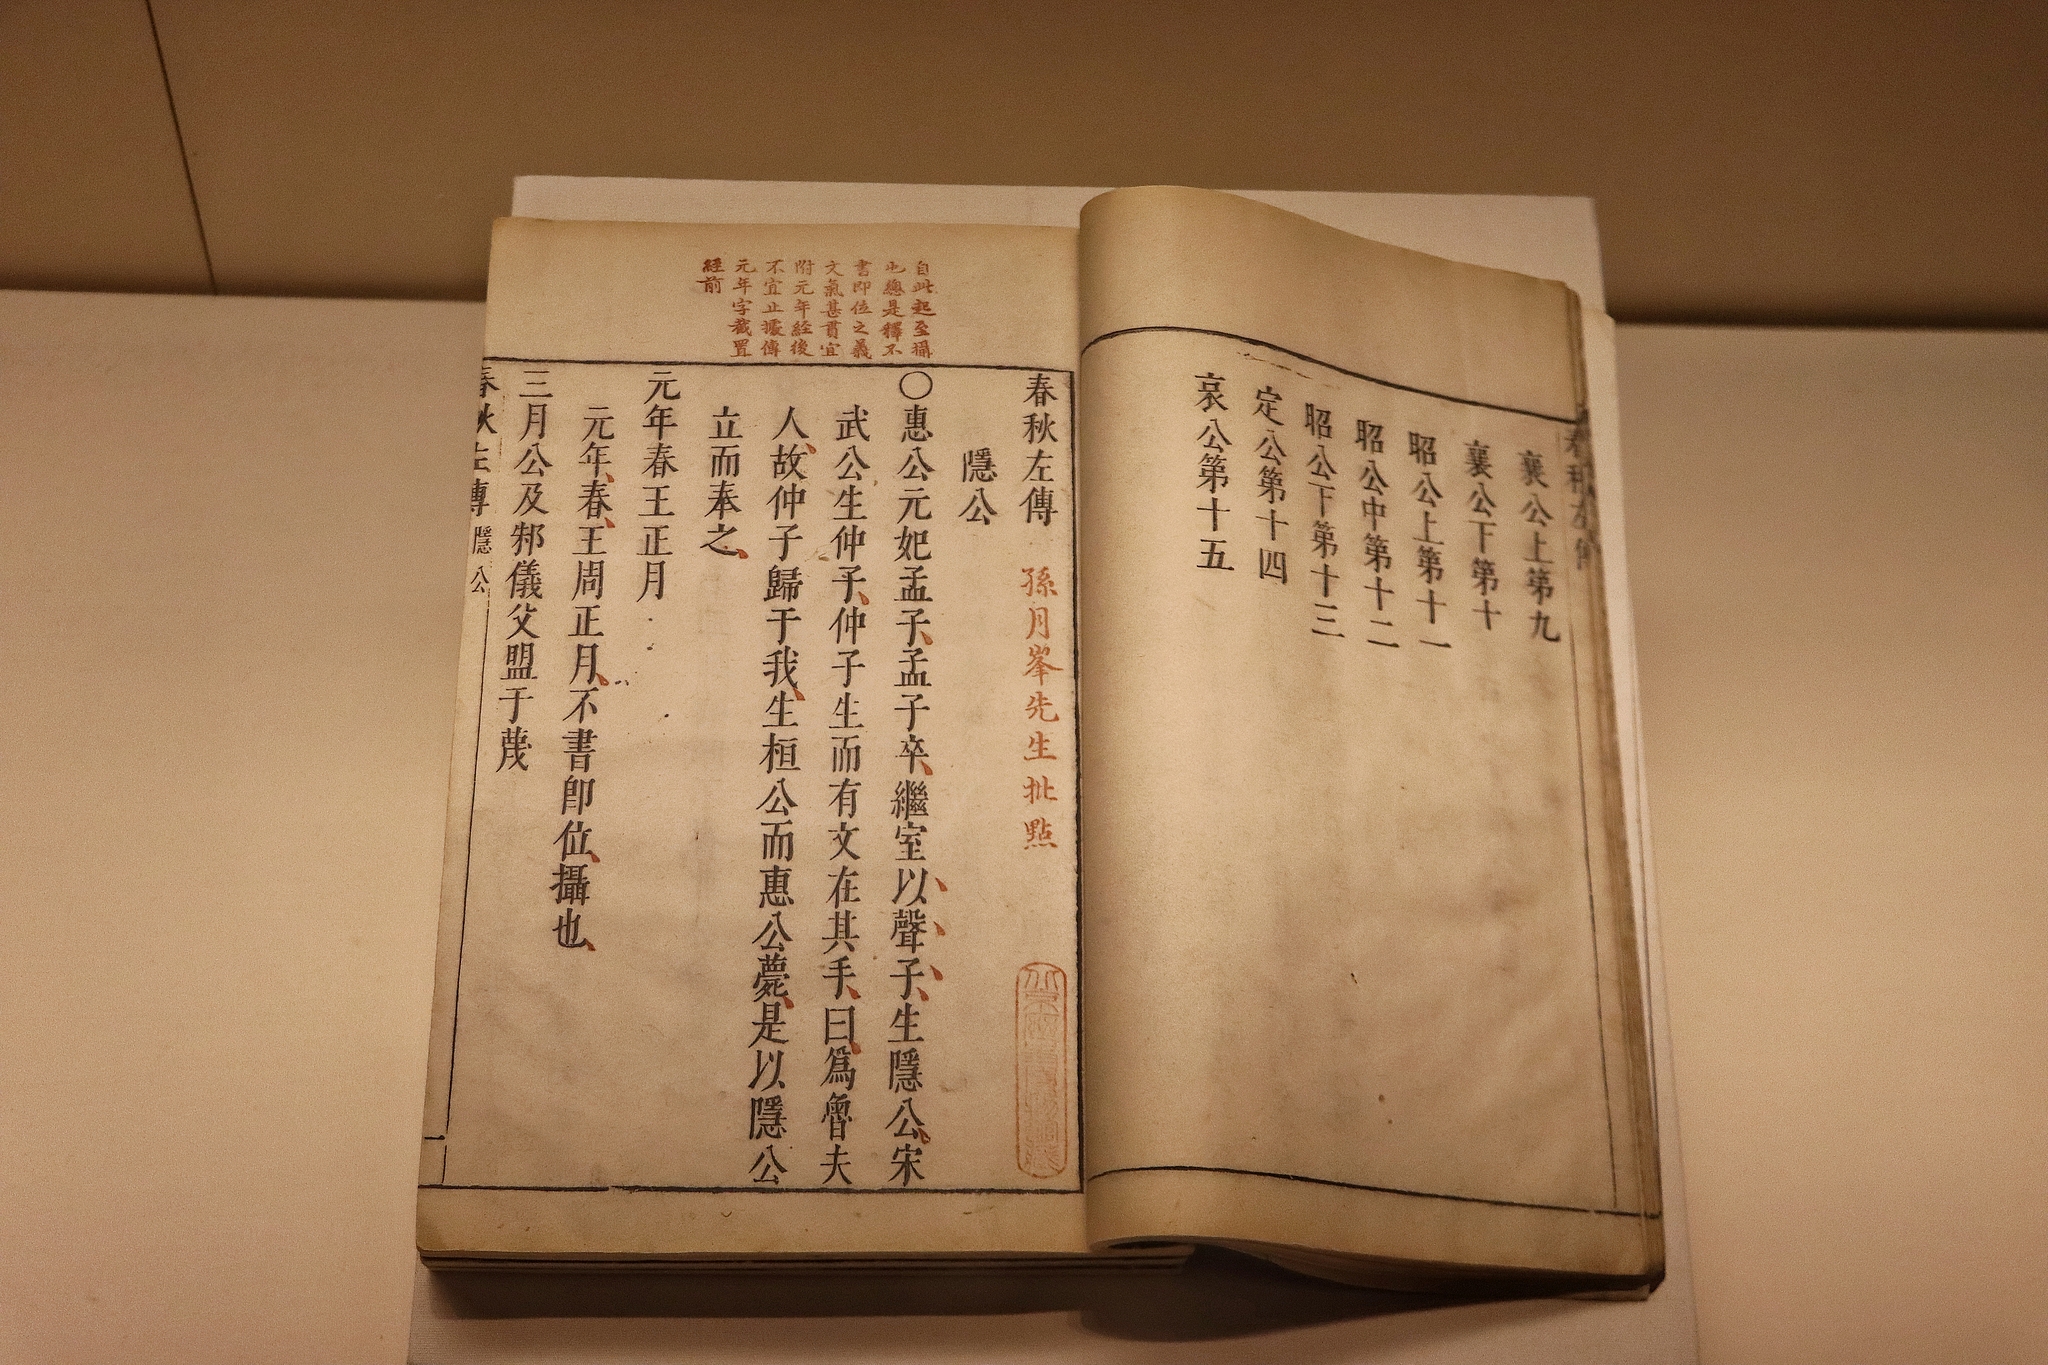 襄公上第九
襄公下第十
昭公上第十一
昭公中第十二
昭公下第十三
定公第十四
哀公第十五
春秋左傳 孫月峯先生批點
隱公
〇惠公元妃孟子、孟子卒、繼室以聲子、生隱公、宋
武公生仲子、仲子生而有文在其手、曰、爲魯夫
人、故仲子歸于我、生桓公而惠公薨、是以隱公
立而奉之、
元年春王正月
元年、春、王周正月、不書卽位、攝也、
三月公及邾儀父盟于蔑
春秋左傳 隱公 一
自此起至攝
也總是釋不
書卽位之義
文氣甚貫宜
附元年經後
不宜止據傳
元年字截置
經前